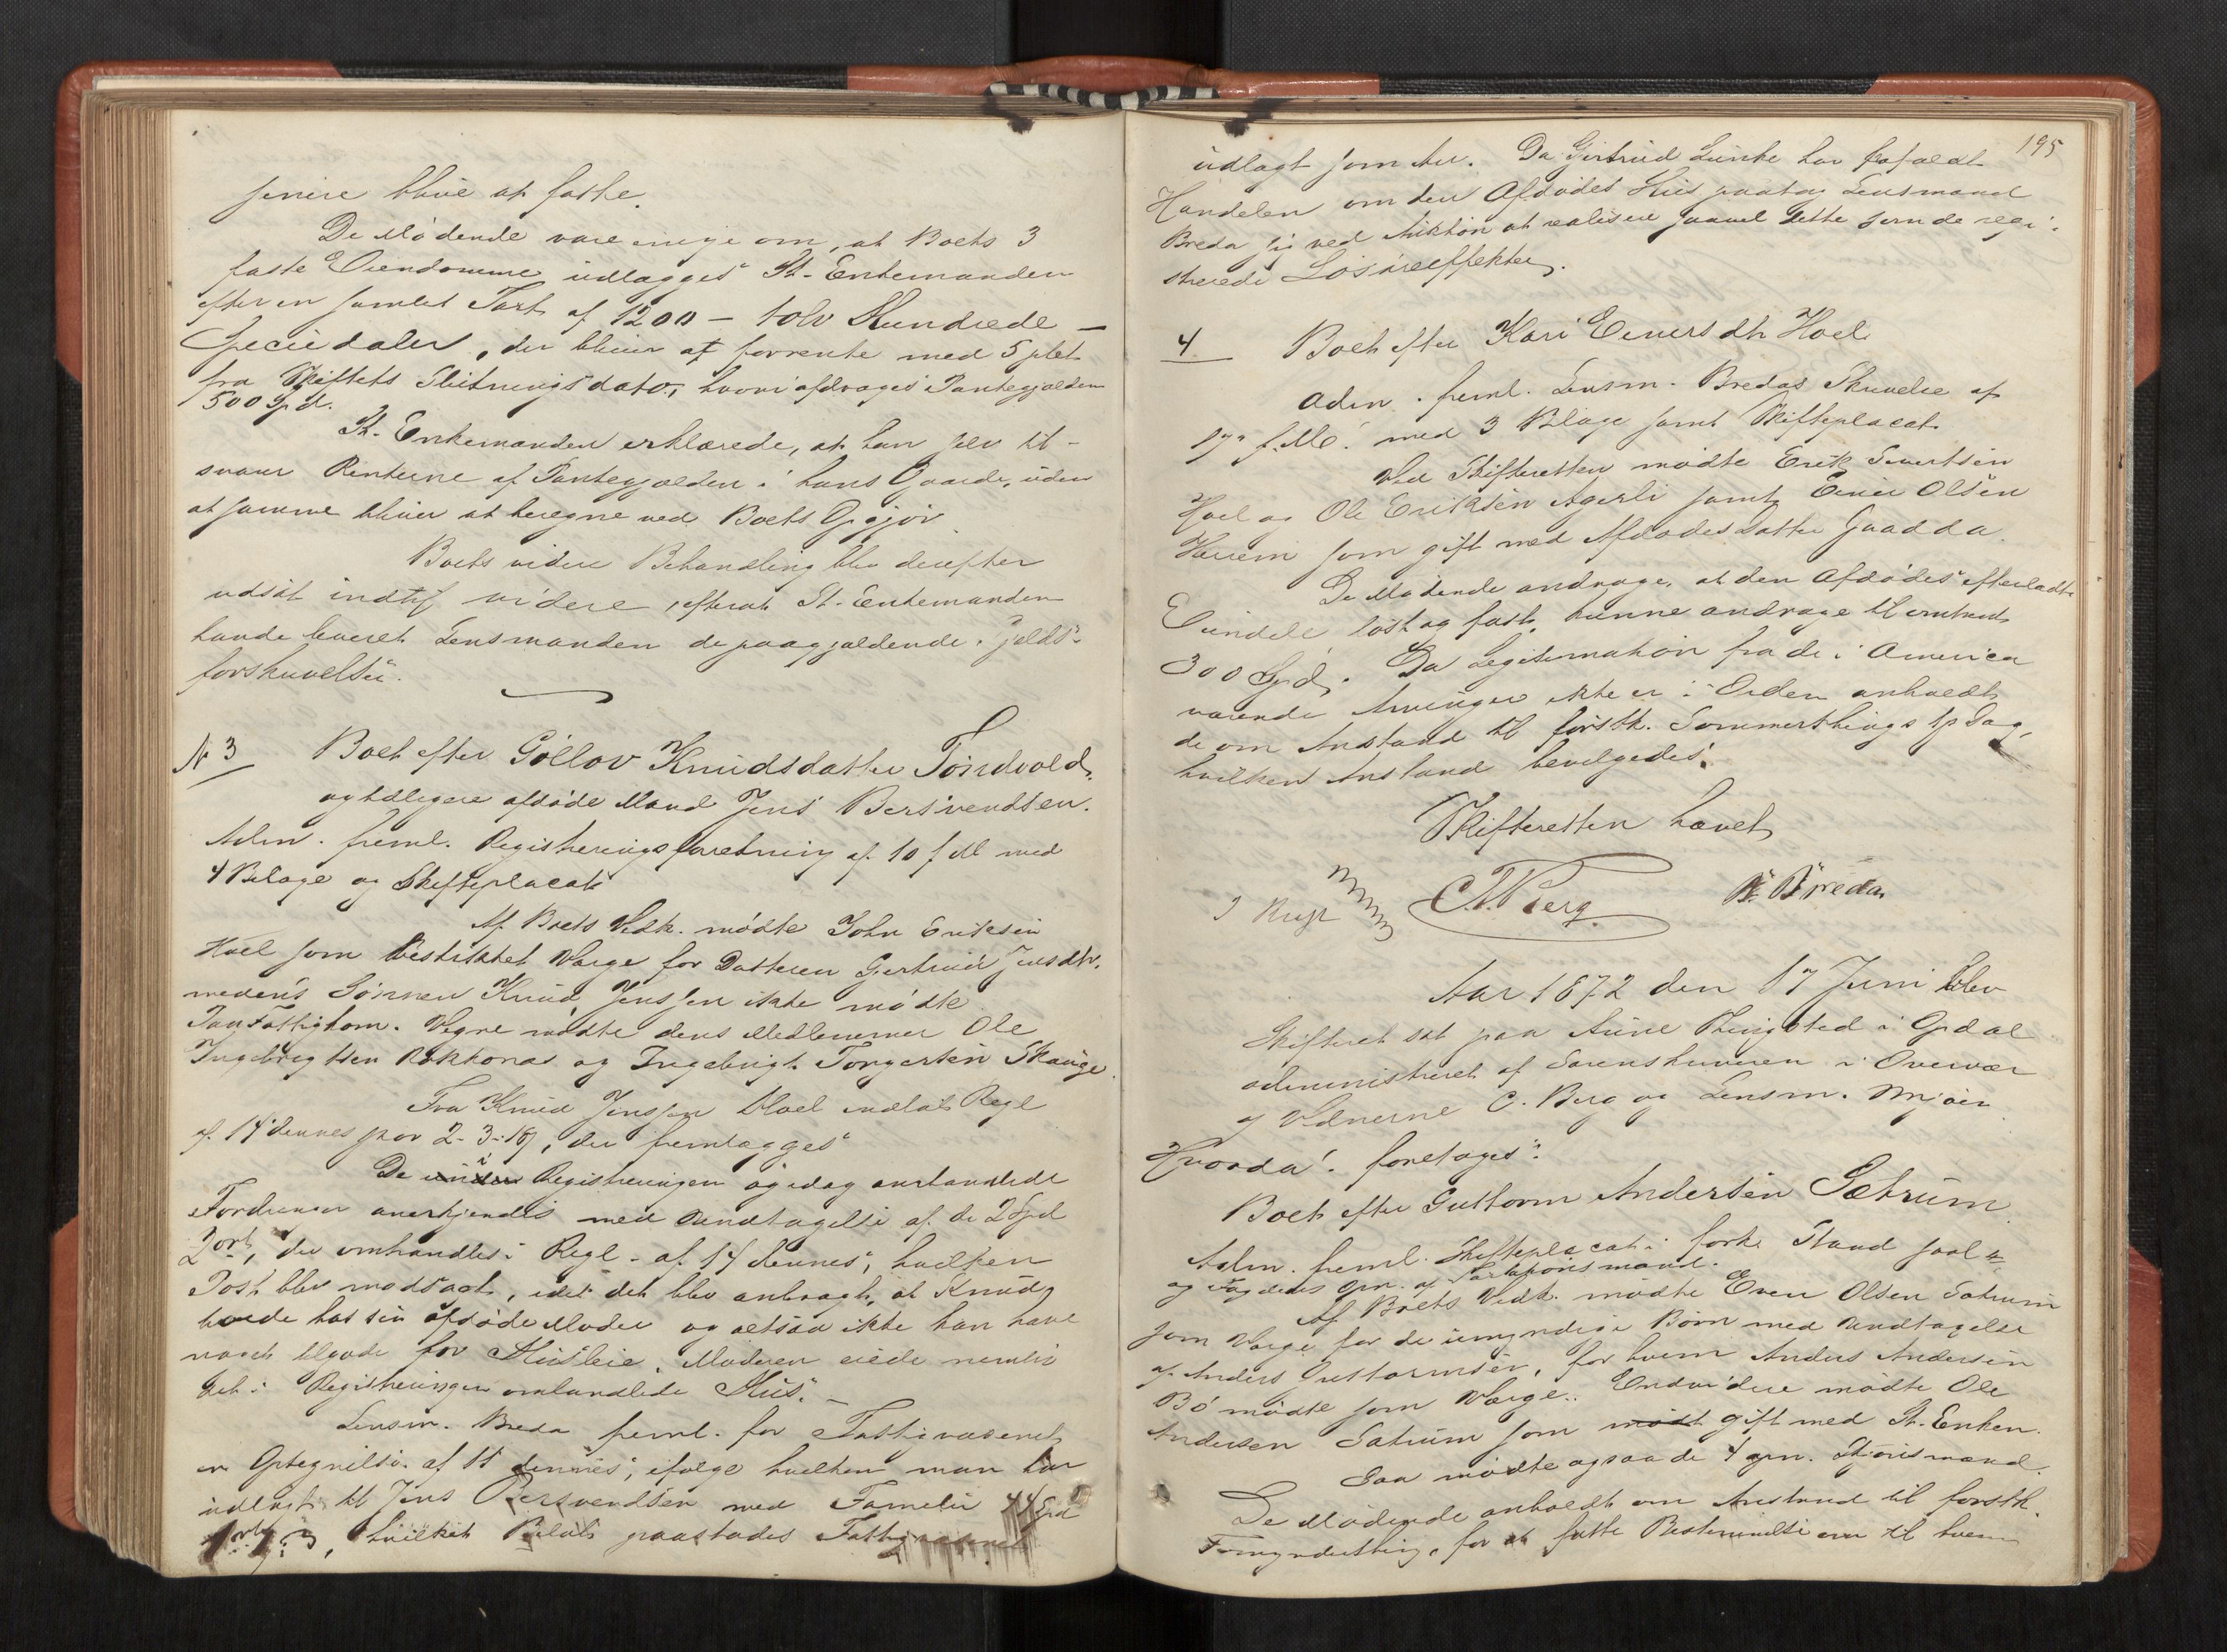 senere blive at fatte.
De Mødende vare enige om, at Boets 3
faste Eiendomme udlægges St. Enkemanden
efter en samlet Taxt af 1200 – tolv Hundrede –
Speciedaler, der bliver at forrente med 5 pCt
fra Skiftets Slutningsdato, hvori afdrages Pantegjælden
500 Spd.
St. Enkemanden erklærede, at han selv til-
svarer Renterne af Pantegjælden i hans Gaarde, uden
at samme bliver at beregne ved Boets Opgjør
Boets videre Behandling blev derefter
udsat indtil videre, efterat St. Enkemanden
havde leveret Lensmanden de paagjældende Gjelds-
forskrivelser.
N 3 Boet efter Göllov Knudsdatter Tondvold,
og tidligere afdøde Mand Jens Bersvendsen.
Adm. freml. Registreringsforretning af 10 f. M. med
4 Bilage og Skifteplacat
Af Boets Vedk. mødte John Eriksen
Hoel som beskikket Værge for Datteren Gertrud Jensdtr.
medens Sønnen Knud Jenssen ikke mødte
Paa Fattigkom. Vegne mødte dens Medlemmer Ole
Ingebrigtsen og Ingebrigt Torgersen Skauge.
Fra Knud Jenssen Hoel indløb Regl
af 14 dennes stor 2-3-18, der fremlægges
De under Registreringen og idag omhandlede
Fordringer anerkjendes med Undtagelse af de 2 Spd
2 ort, der omhandles i Regl. af 14 dennes, hvilken
Post blev modsagt, idet det blev anbragt, at Knud
boede hos sin afdøde Moder og altsaa ikke kan have
noget tilgode for Huusleie. Moderen eiede nemlig
det i Registreringen omhandlede Huus.
Lensm. Breda freml. for Fattigvæsenet
en Optegnelse af 15 dennes, ifølge hvilken man har
udlagt til Jens Bersvendsen med Familie 44 Spd
hvilket Beløb paastodes Fattigvæsenet
195
udlagt som Arv. Da Gertrud Lunke har frafaldt
Handelen om den Afdødes Huus paatog Lensmand
Breda sig ved Auktion at realisere saavel dette som de regi-
strerede Løsøreeffekter.
4 Boet efter Kari Eiversdtr Hoel
Adm. freml. Lensm. Bredas Skrivelse af
17 f. M. med 3 Bilage samt Skifteplacat
Ved Skifteretten mødte Erik Sivertsen
Hoel og Ole Eriksen Agerli samt Einer Olsen
som gift med Afdødes Datter
De Mødende androge, at den Afdødes efterladte
Eiendele løst og fast, kunne andrage til omtrent
300 Spd. Da Legitimation fra de i America
værende Arvinger ikke er i Orden anholdt
de om Anstand til førstk. Sommerthings 1ste Dag,
hvilken Anstand bevilgedes.
Skifteretten hævet
C. Berg Breda
Aar 1872 den 17 Juni blev
Skifteret sat paa Aune Thingsted i Opdal
administreret af Sorenskriveren i Overvær
af Vidnerne C. Berg og Lensm. Mjøen
Hvorda: foretoges:
Boet efter Guttorm Andersen Sætrum.
Adm. freml. Skifteplacat i fork. Stand
og Fogdens Opn. af Taxtationsmænd.
Af Boets Vedk. mødte Even Olsen Sætrum
som Værge for de umyndige Børn med Undtagelse
af Anders Guttormsen, for hvem Anders Andersen
Bø mødte som Værge. Endvidere mødte Ole
Andersen Sætrum som mødt gift med St. Enken.
Saa mødte ogsaa de 4 opn. Skjønsmænd.
De Mødende anholdt om Anstand til førstk.
for at fatte Bestemmelse om til hvem